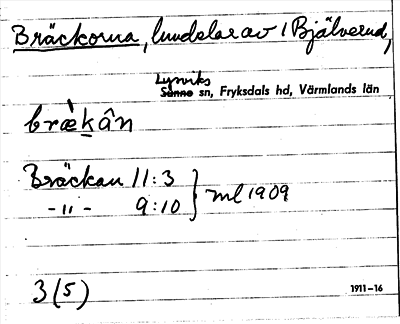 Bräckorna, lundelar av 1 Bjälverud,
Lysviks
Sunne sn, Fryksdals hd, Värmlands län
bræ̀kân
Bräckan 11:3
-"- 9:10 } ml 1909
3(5)
1911–16